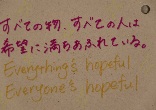 すべての物、すべての人は
希望に満ちあふれている。
Everything's hopeful
Everyone's hopeful